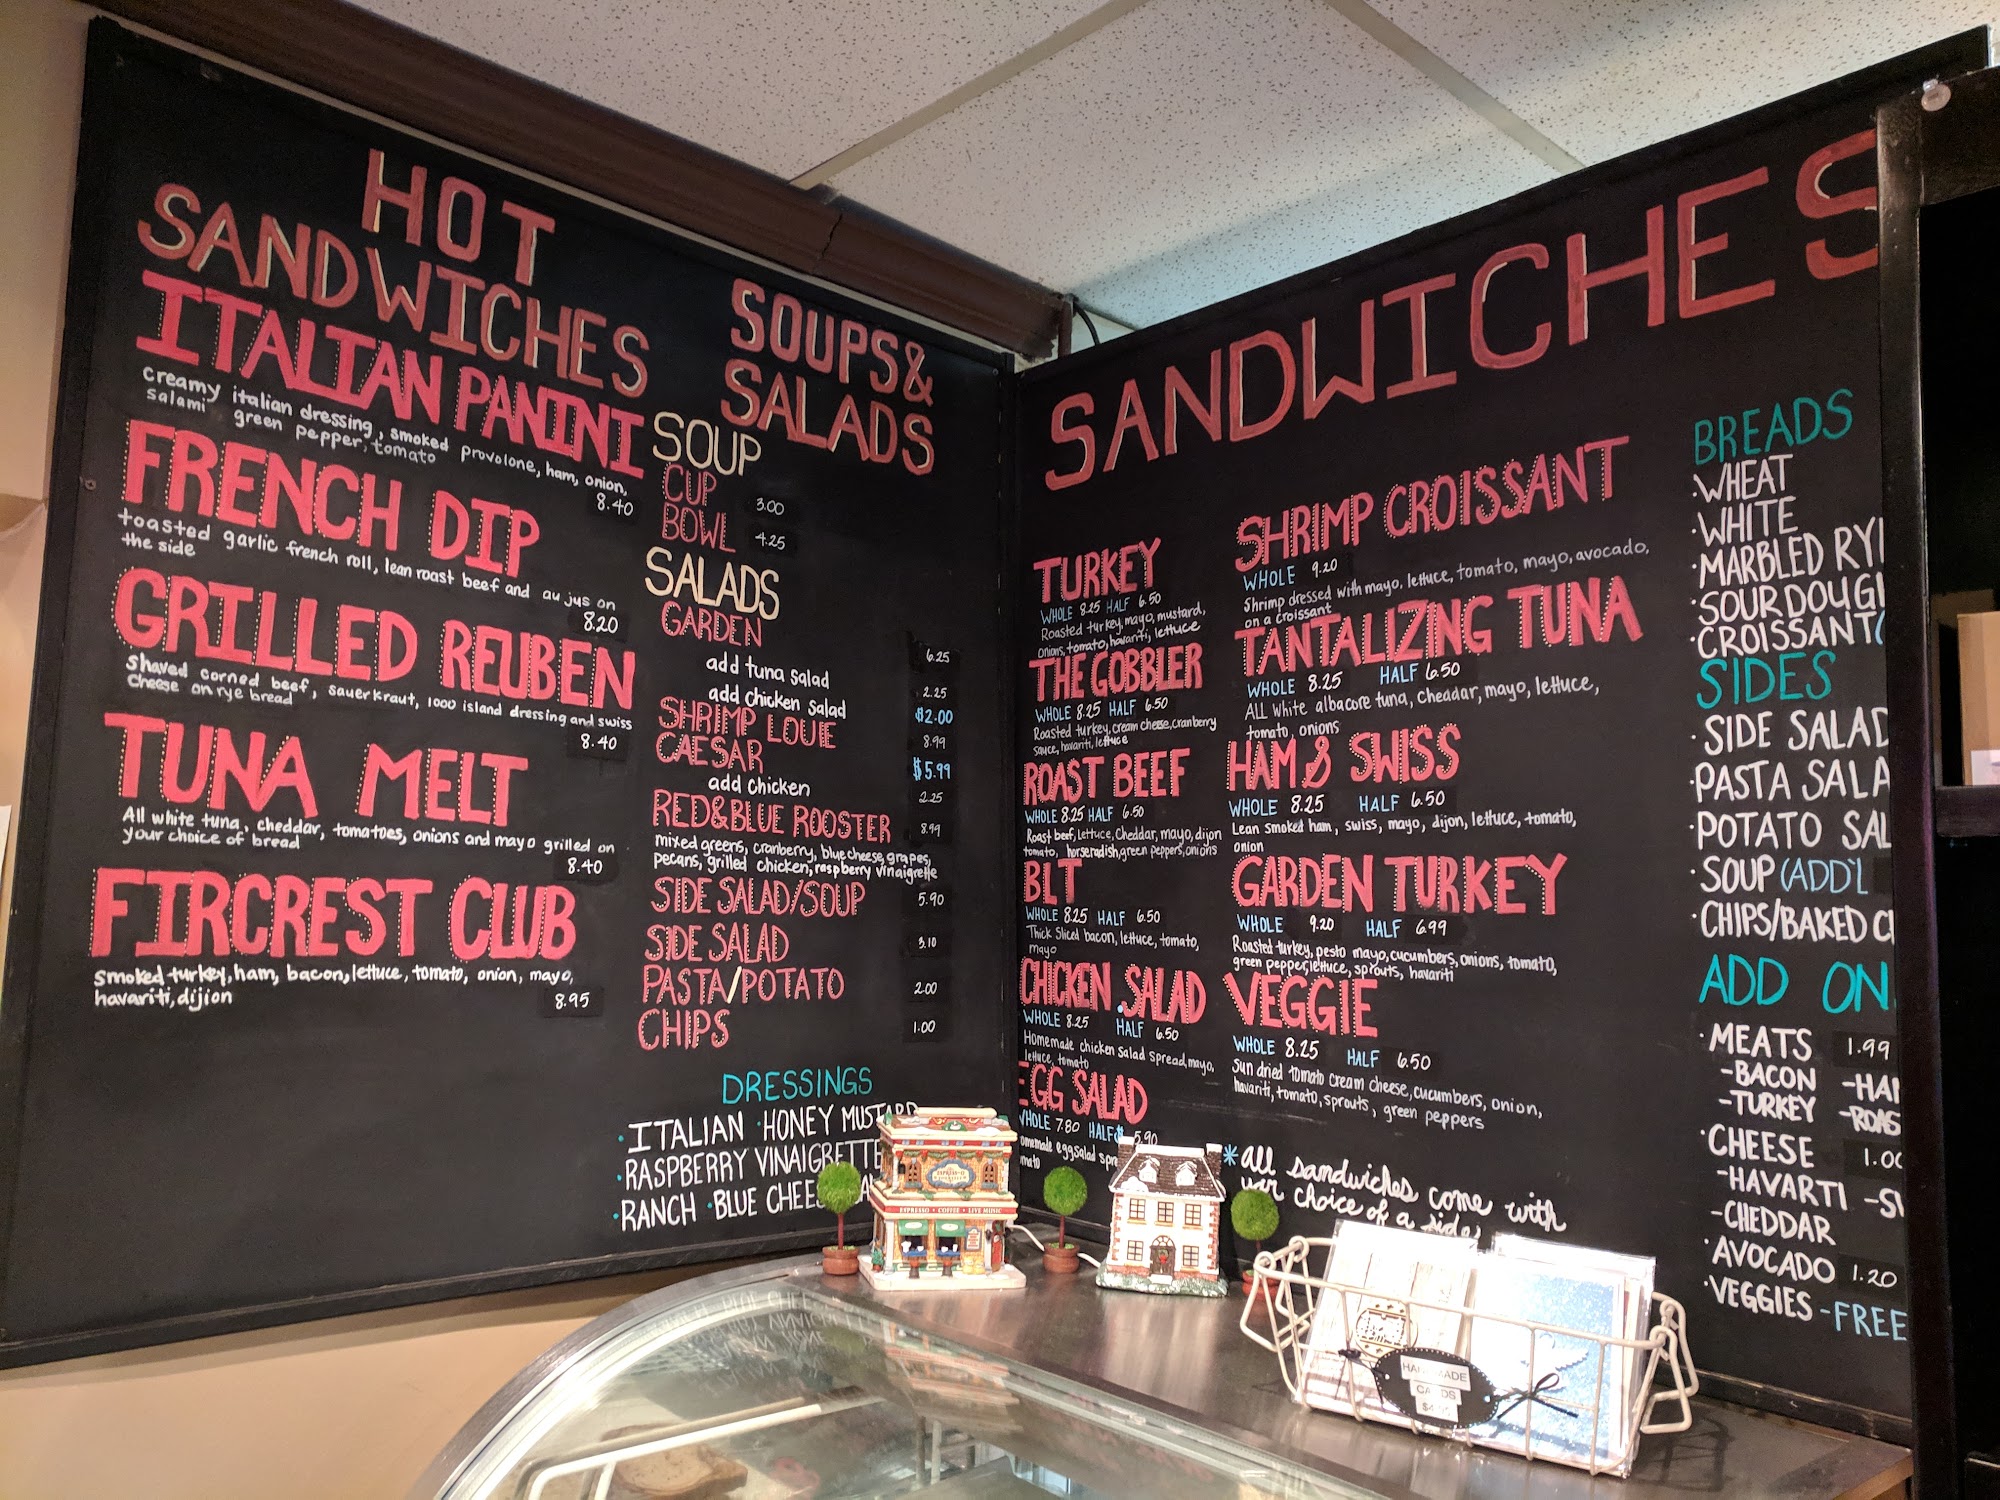 HOT
SANDWICHES
ITALIAN PANINI
creamy italian dressing, smoked provolone, ham, onion,
salami green pepper, tomato
8.40
FRENCH DIP
toasted garlic french roll, lean roast beef and au jus on
the side
8.20
GRILLED REUBEN
shaved corned beef, sauerkraut, 1000 island dressing and swiss
cheese on rye bread
8.40
TUNA MELT
All white tuna, cheddar, tomatoes, onions and mayo grilled on
your choice of bread
8.40
FIRCREST CLUB
smoked turkey, ham, bacon, lettuce, tomato, onion, mayo,
havariti, dijion
8.95
SOUPS &
SALADS
SOUP
CUP 3.00
BOWL 4.25
SALADS
GARDEN 6.25
add tuna salad 2.25
add chicken salad $2.00
SHRIMP LOUIE 8.99
CAESAR $5.99
add chicken 2.25
RED&BLUE ROOSTER 8.99
mixed greens, cranberry, blue cheese, grapes,
pecans, grilled chicken, raspberry vinaigrette
SIDE SALAD/SOUP 5.90
SIDE SALAD 3.10
PASTA/POTATO 2.00
CHIPS 1.00
DRESSINGS
·ITALIAN ·HONEY MUSTARD
·RASPBERRY VINAIGRETTE
·RANCH ·BLUE CHEES
SANDWICHES
TURKEY
WHOLE 8.25 HALF 6.50
Roasted turkey, mayo, mustard,
onions, tomato, havariti, lettuce
THE GOBBLER
WHOLE 8.25 HALF 6.50
Roasted turkey, cream cheese, cranberry
sauce, havariti, lettuce
ROAST BEEF
WHOLE 8.25 HALF 6.50
Roast beef, lettuce, cheddar, mayo, dijon
tomato, horseradish, green peppers, onions
BLT
WHOLE 8.25 HALF 6.50
Thick sliced bacon, lettuce, tomato,
mayo
CHICKEN SALAD
WHOLE 8.25 HALF 6.50
Homemade chicken salad spread, mayo,
lettuce, tomato
EGG SALAD
WHOLE 7.80 HALF $ 5.90
omemade eggsalad spre
mato
SHRIMP CROISSANT
WHOLE 9.20
Shrimp dressed with mayo, lettuce, tomato, mayo, avocado,
on a croissant
TANTALIZING TUNA
WHOLE 8.25 HALF 6.50
ALL White albacore tuna, cheddar, mayo, lettuce,
tomato, onions
HAM & SWISS
WHOLE 8.25 HALF 6.50
Lean smoked ham, swiss, mayo, dijon, lettuce, tomato,
onion
GARDEN TURKEY
WHOLE 9.20 HALF 6.99
Roasted turkey, pesto mayo, cucumbers, onions, tomato,
green pepper, lettuce, sprouts, havariti
VEGGIE
WHOLE 8.25 HALF 6.50
Sun dried tomato cream cheese, cucumbers, onion,
havariti, tomato, sprouts, green peppers
*all sandwiches come with
your choice of a side
BREADS
·WHEAT
·WHITE
·MARBLED RYE
·SOURDOUGH
·CROISSANT(
SIDES
·SIDE SALAD
·PASTA SALA
·POTATO SAL
·SOUP (ADD'L
·CHIPS/BAKED C
ADD ON
·MEATS 1.99
-BACON -HA
-TURKEY -ROAS
·CHEESE 1.00
-HAVARTI -S
-CHEDDAR
·AVOCADO 1.20
·VEGGIES -FREE
ESPRESSO • COFFEE • LIVE MUSIC
HANDMADE
CARDS